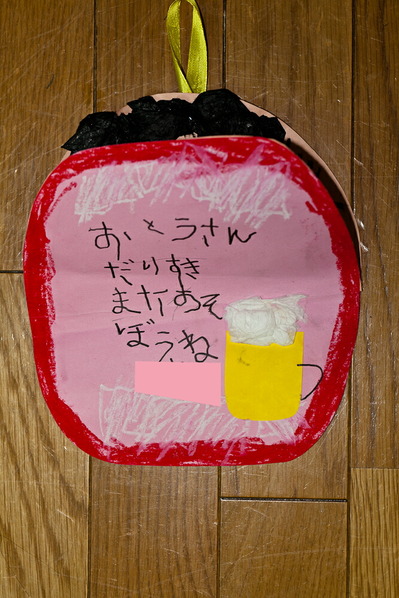 おとうさん
だりすき
またあそ
ぼうね